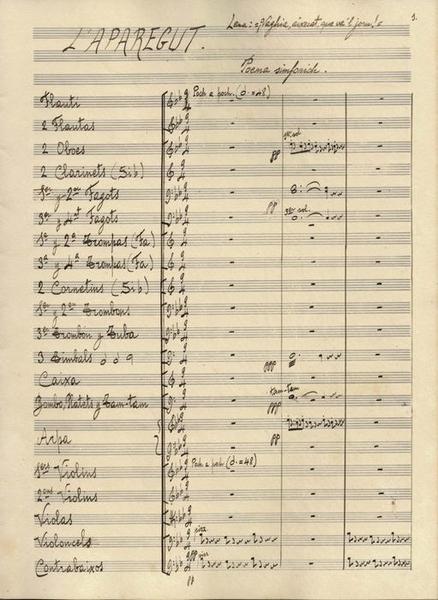 Lema: "Vaghia, aixecat, que ve'l jorn!"
1.
L'APAREGUT.
Poema simfonich.
Flauti
Poch a poch. (d. = 48)
2 Flautas
2 Oboes
pp
2 Clarinets (Sib)
1er y 2on Fagots
pp
3er y 4rt Fagots
1ª y 2ª Trompas (Fa)
3ª y 4ª Trompas (Fa)
2 Cornetins (Sib)
1er y 2on Trombons
3er Trombon y Tuba
3 Timbals
ppp
Caixa
Bombo, Platets y Tam-tam
Tam-tam
ppp
Arpa
pp
1ers Violins
Poch a poch (d. = 48)
2ons Violins
Violas
Violoncels
Contrabaixos
pp